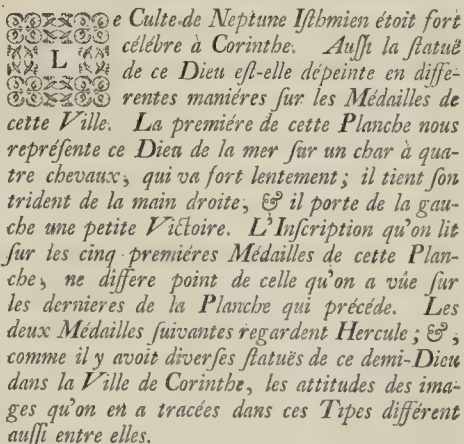 Le Culte de Neptune Isthmien étoit fort
célébre à Corinthe. Aussi la statuë
de ce Dieu est-elle dépeinte en diffe-
rentes maniéres sur les Médailles de
cette Ville. La premiére de cette Planche nous
repréſente ce Dieu de la mer sur un char à qua-
tre chevaux, qui va fort lentement; il tient son
trident de la main droite, & il porte de la gau-
che une petite Victoire. L'Inscription qu'on lit
sur les cinq premiéres Médailles de cette Plan-
che, ne differe point de celle qu'on a vûe sur
les dernieres de la Planche qui précéde. Les
deux Médailles suivantes regardent Hercule; &,
comme il y avoit diverses statuës de ce demi-Dieu
dans la Ville de Corinthe, les attitudes des ima-
ges qu'on en a tracées dans ces Tipes différent
aussi entre elles.